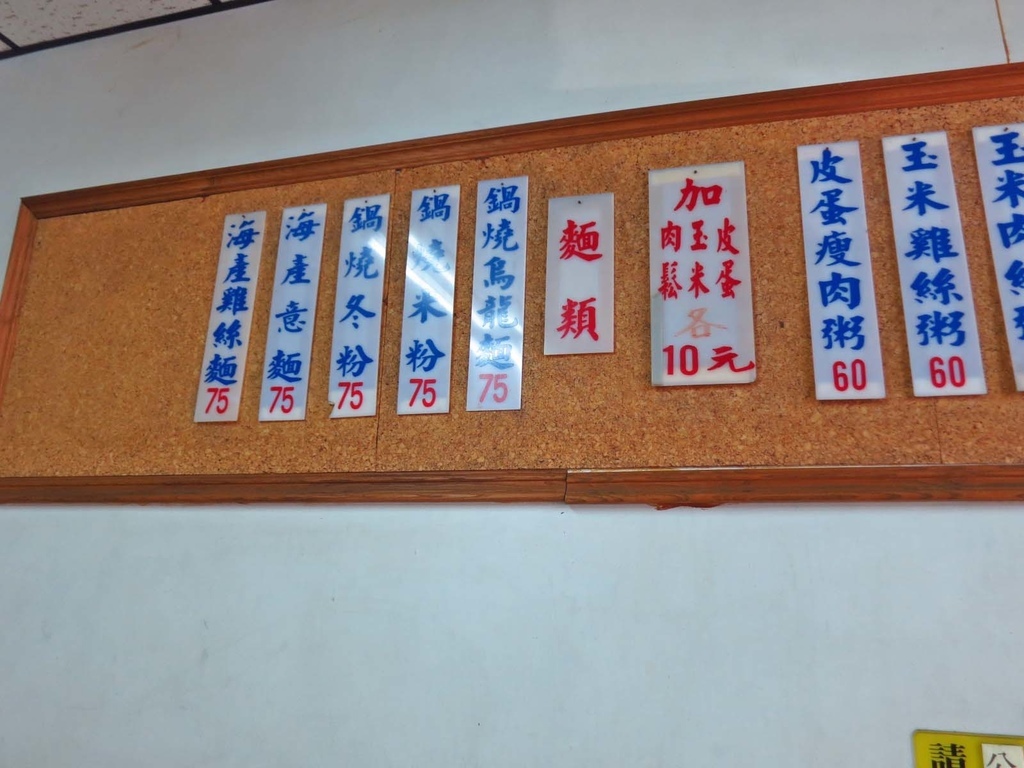 玉米肉絲粥
玉米雞絲粥
60
皮蛋瘦肉粥
60
加
皮蛋
玉米
肉鬆
各
10元
麵類
鍋燒烏龍麵
75
鍋燒米粉
75
鍋燒冬粉
75
海產意麵
75
海產雞絲麵
75
請
公